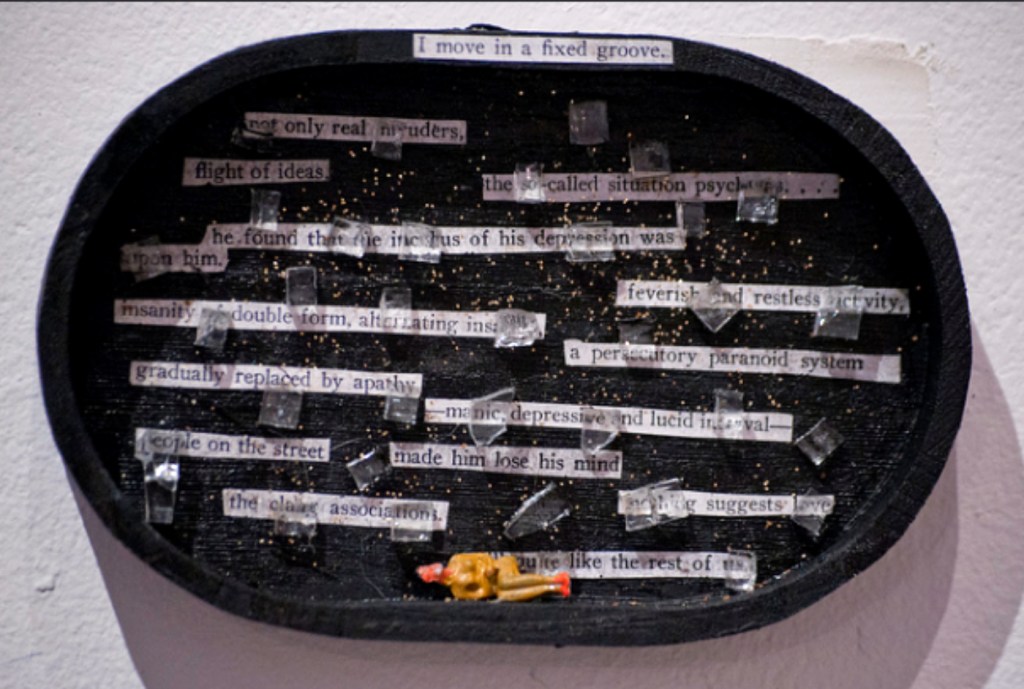 I move in a fixed groove.
not only real
flight of ideas.
the so-called situation
he found that the incubus of his depression was
upon him.
feverish and restless activity,
insanity of double form, alternating
a persecutory paranoid system
gradually replaced by apathy
—manic, depressive and lucid interval—
people on the street
made him lose his mind
the clang associations.
suggests love
like the rest of us.